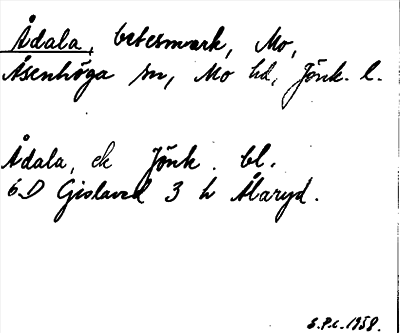 Ådala, betesmark, Mo,
Åsenhöga sn, Mo hd, Jönk. l.
Ådala, ek Jönk. bl.
6D Gislaved 3 h Åbaryd.
S.P.C. 1958.